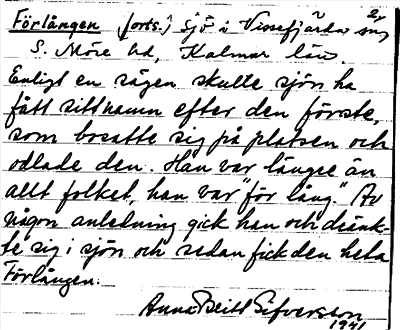 2,
Förlången (forts.) sjö i Vissefjärda sn,
S. Möre hd, Kalmar län.
Enligt en sägen skulle sjön ha
fått sitt namn efter den förste,
som bosatte sig på platsen och
odlade den. Han var längre än
allt folket, han var "för lång." Av
någon anledning gick han och dränk-
te sig i sjön och sedan fick den heta
Förlången.
Anna-Britt Sefverston
1941